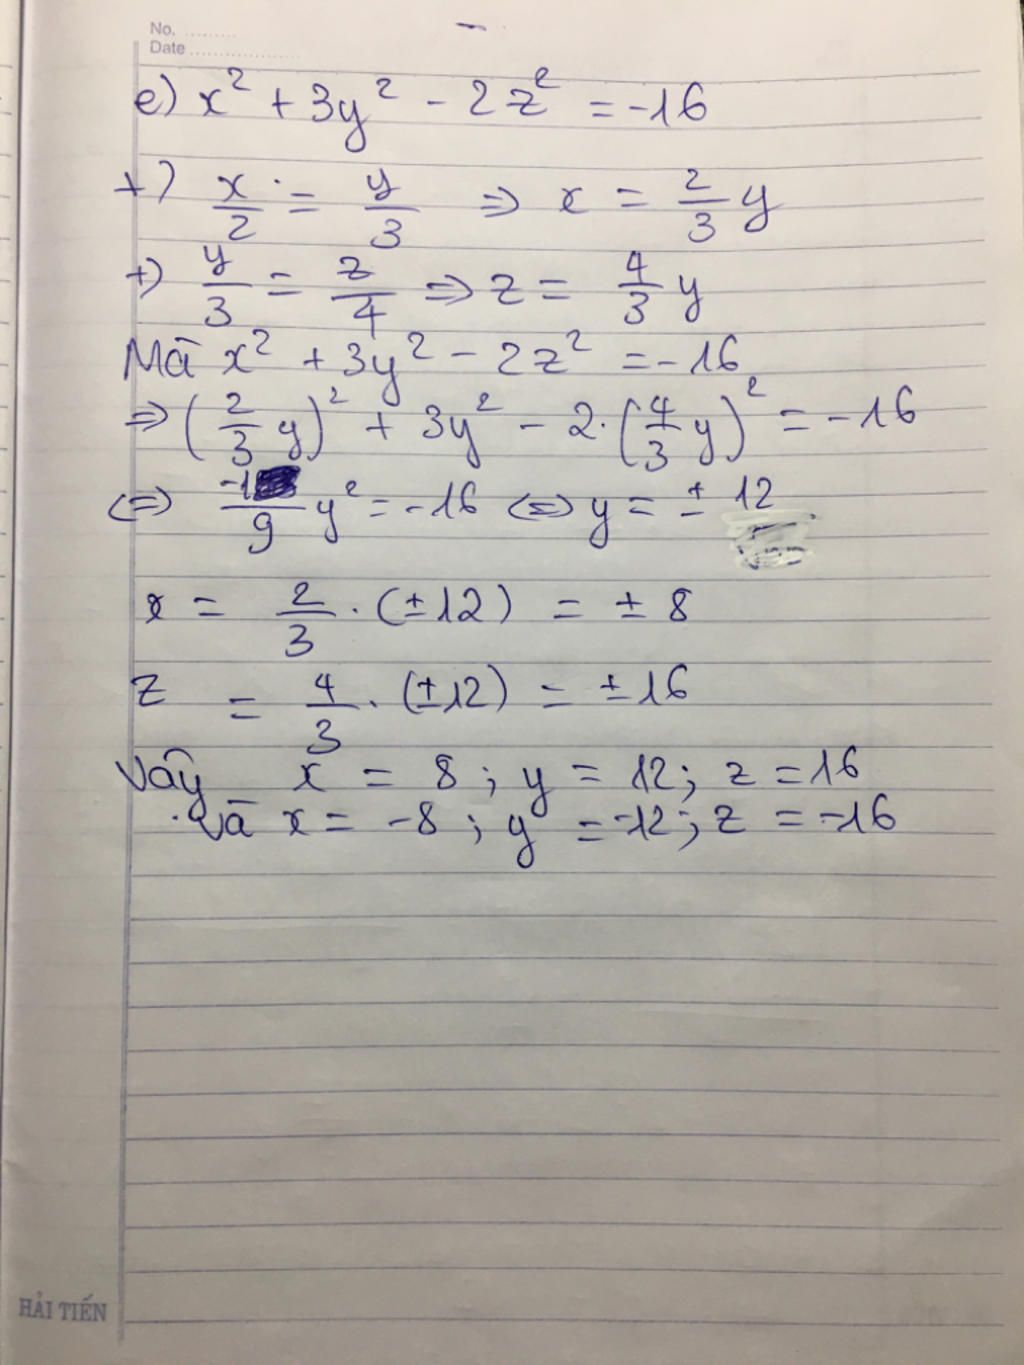 No. .........
Date ...................
e) x² + 3y² - 2z² = -16
+) x/2 = y/3 ⇒ x = 2/3 y
+) y/3 = z/4 ⇒ z = 4/3 y
Mà x² + 3y² - 2z² = -16
⇒ (2/3 y)² + 3y² - 2.(4/3 y)² = -16
⇔ -1/9 y² = -16 ⇔ y = ± 12
x = 2/3 . (±12) = ± 8
z = 4/3 . (±12) = ±16
Vậy x = 8 ; y = 12; z = 16
Và x = -8 ; y = -12; z = -16
HẢI TIẾN